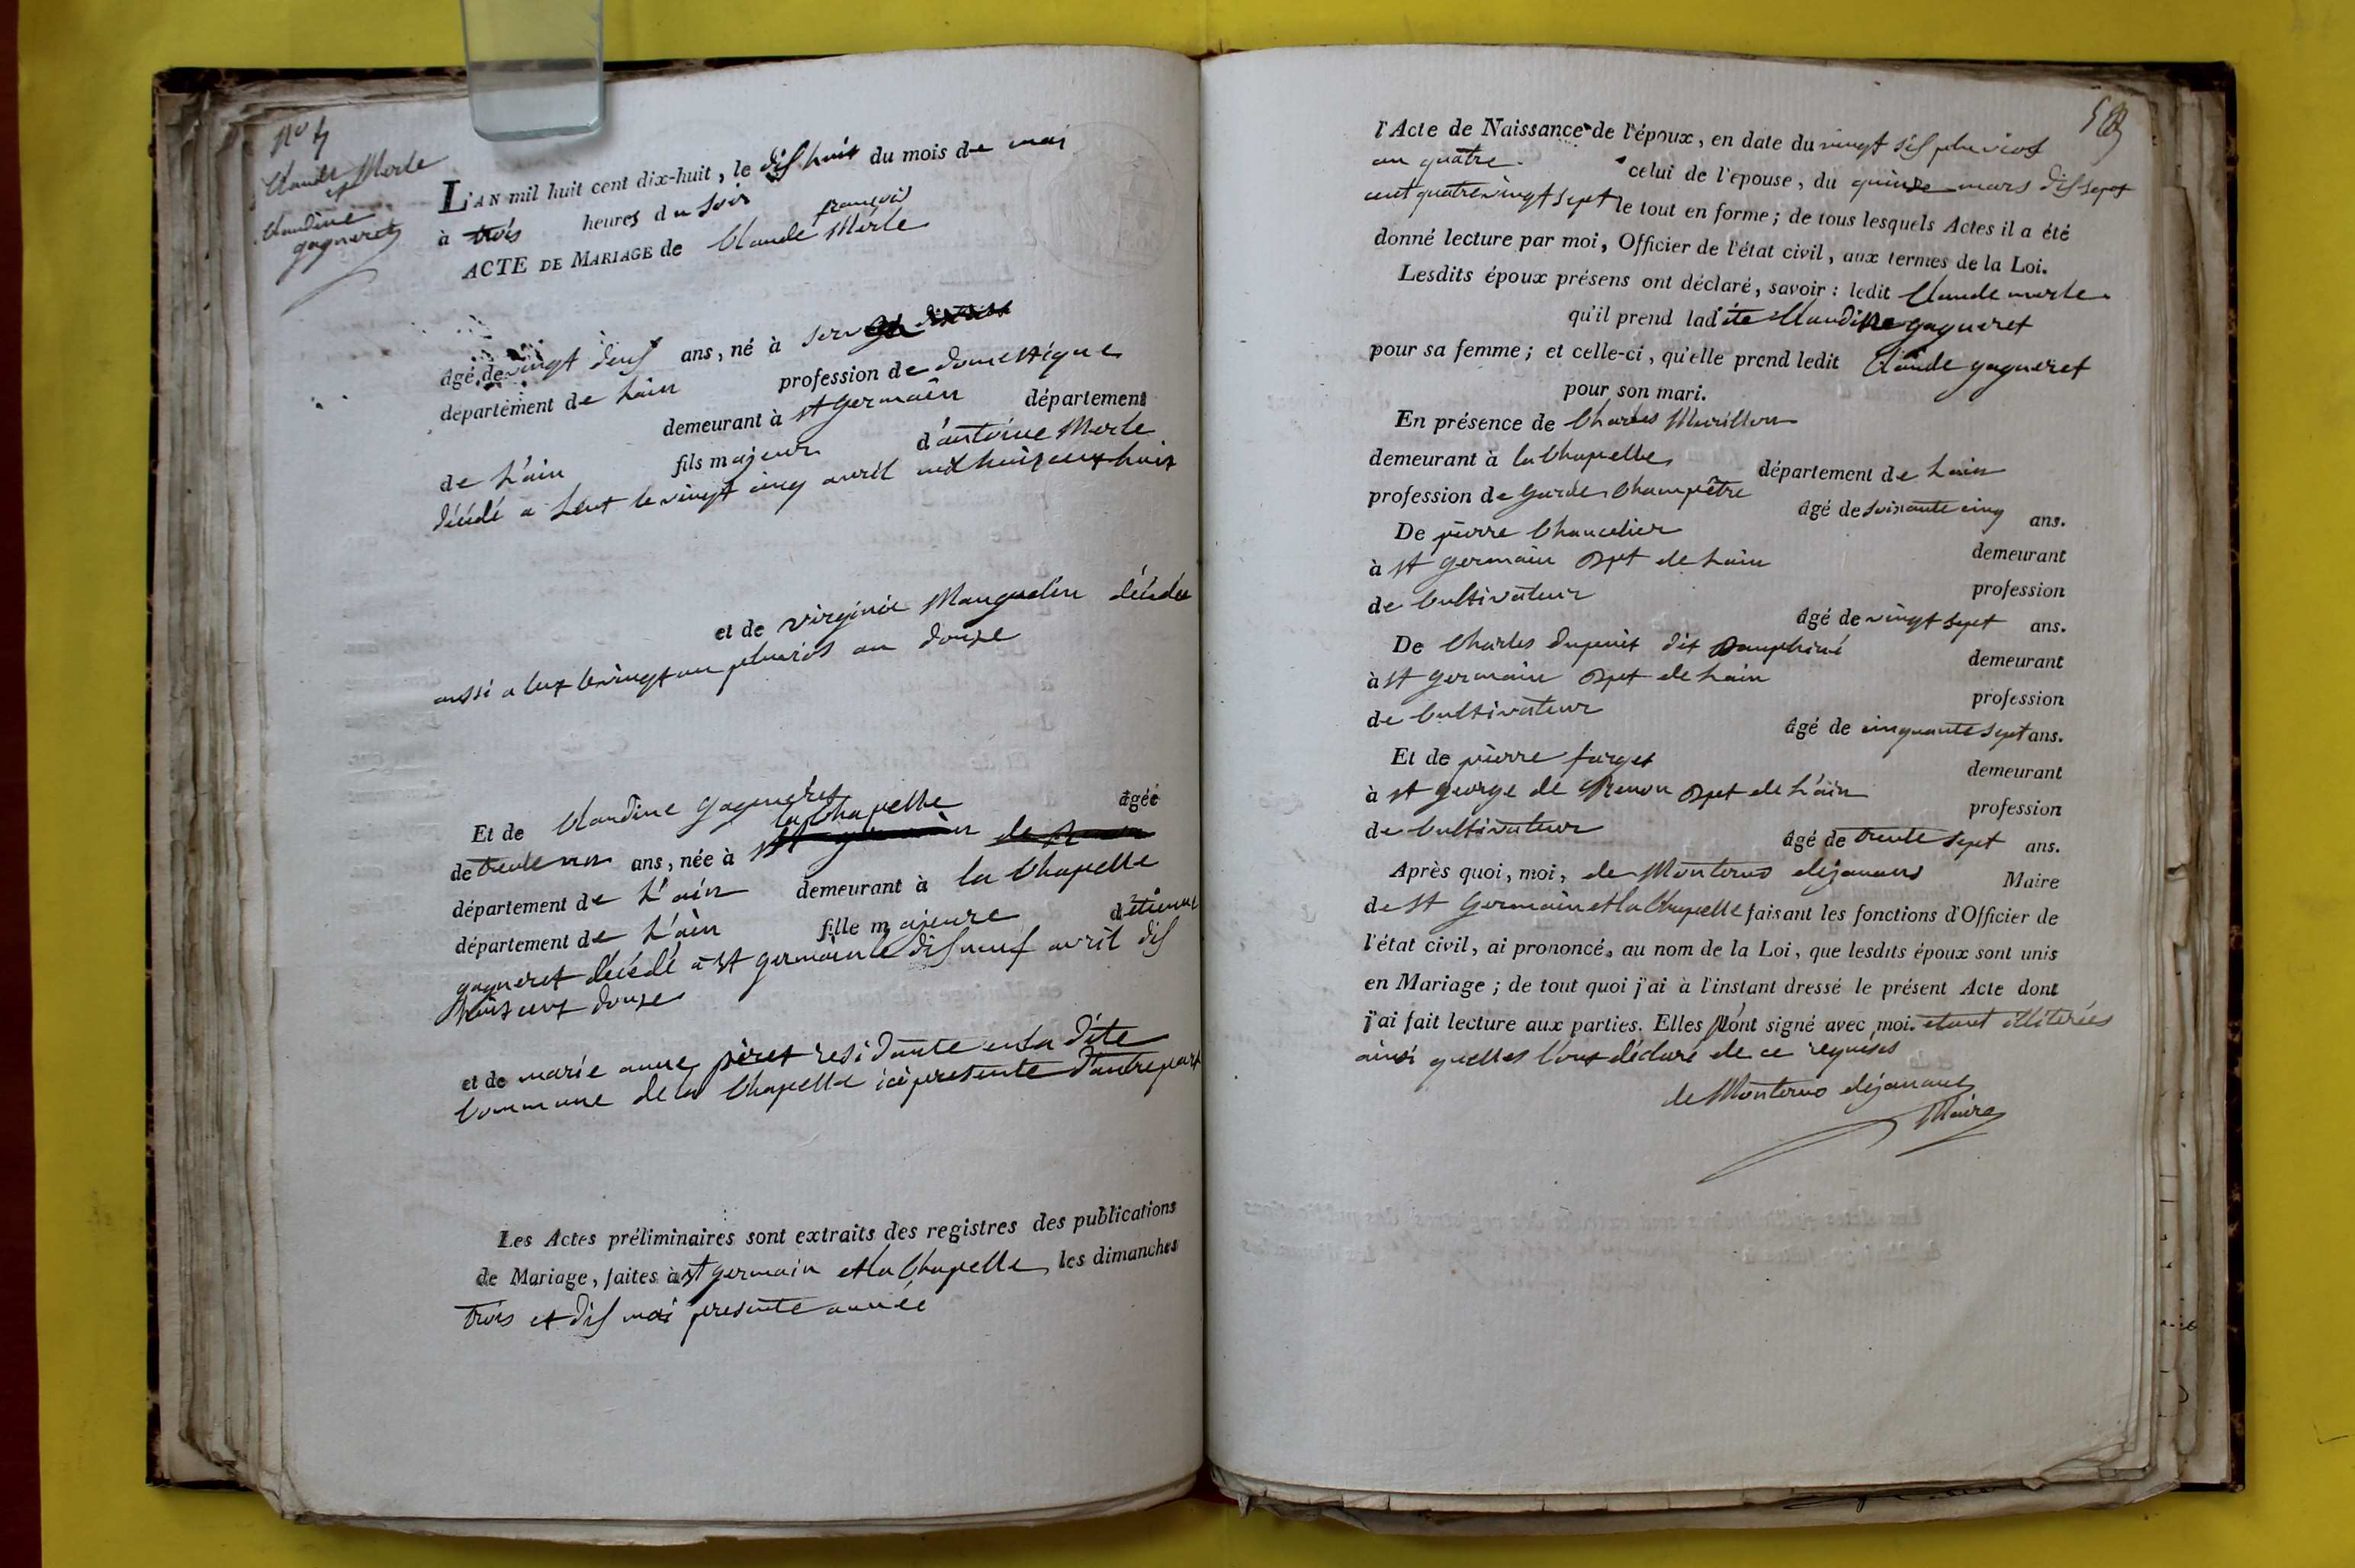 Claude Merle
et
Claudine
gagneret
L'AN mil huit cent dix-huit, le dis huit du mois de mai
à trois heures du soir
françois
ACTE DE MARIAGE de Claude Merle
âgé de vingt deus ans, né à
département de Lain profession de domestique
demeurant à st germain département
de L'ain fils majeur d'antoine Merle
décédé a Lent le vingt cinq avril mil huit cent huit
et de virginie Manguelin décédée
aussi a lent le vingt un pluvios an douze
Et de Claudine gagneret âgée
la Chapelle
de trente un ans, née à
département de L'ain demeurant à la Chapelle
département de L'ain fille majeure d'étienne
gagneret décédé a st germain le dis neuf avril dis
huit cent douze
et de marie anne péret residante en la dite
Commune de la Chapelle ici presente d'autre part
Les Actes préliminaires sont extraits des registres des publications
de Mariage, faites à st germain et la Chapelle les dimanches
trois et dis mai presente année
l'Acte de Naissance de l'époux, en date du vingt sis pluvios
an quatre celui de l'epouse, du quinze mars dis sept
cent quatrevingt sept le tout en forme; de tous lesquels Actes il a été
donné lecture par moi, Officier de l'état civil, aux termes de la Loi.
Lesdits époux présens ont déclaré, savoir: ledit Claude merle
qu'il prend ladite Claudine gagneret
pour sa femme; et celle-ci, qu'elle prend ledit Claude gagneret
pour son mari.
En présence de Charles Murillon
demeurant à la Chapelle département de Lain
profession de garde Champêtre âgé de soixante cinq ans.
De pierre Chancelier demeurant
à st germain dpt de Lain profession
de Cultivateur âgé de vingt sept ans.
De Charles dupuit dit Dauphiné demeurant
à st germain dpt de Lain profession
de Cultivateur âgé de cinquante sept ans.
Et de pierre farget demeurant
à st george de Renon dpt de L'ain profession
de Cultivateur âgé de trente sept ans.
Après quoi, moi, de Monterno dejanans Maire
de st Germain et la Chapelle faisant les fonctions d'Officier de
l'état civil, ai prononcé, au nom de la Loi, que lesdits époux sont unis
en Mariage; de tout quoi j'ai à l'instant dressé le présent Acte dont
j'ai fait lecture aux parties. Elles n'ont signé avec moi. etant illiterées
ainsi quelles l'ont déclaré de ce requises
de Monterno dejanans
Maire